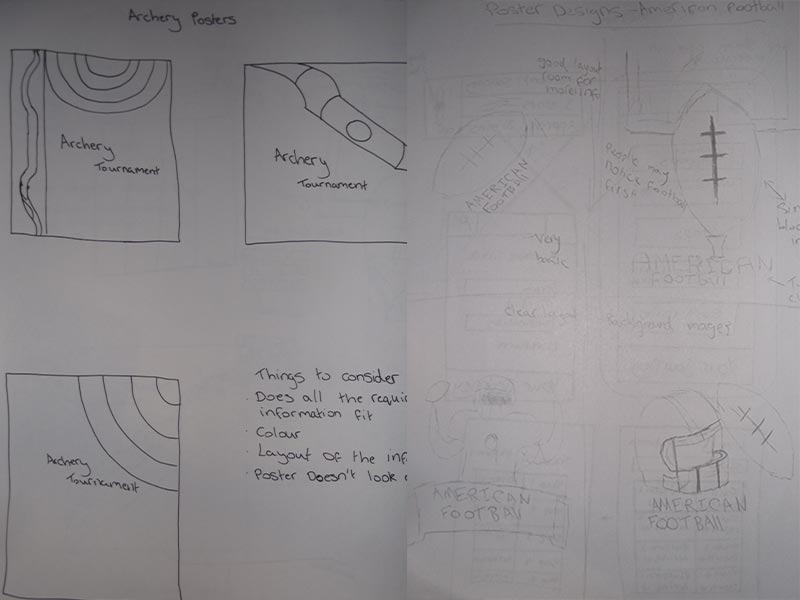 Archery Posters
Archery
Tournament
Archery
Tournament
Archery
Tournament
Things to consider
· Does all the requi
information fit
· Colour
· Layout of the inf
· Poster Doesn't look
Poster Designs - American Football
good layout
room for
more info
AMERICAN
FOOTBALL
People may
notice football
first
very
basic
AMERICAN
FOOTBALL
clear layout
Background images
AMERICAN
FOOTBALL
AMERICAN
FOOTBALL